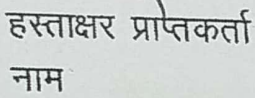 हस्ताक्षर प्राप्तकर्ता
नाम